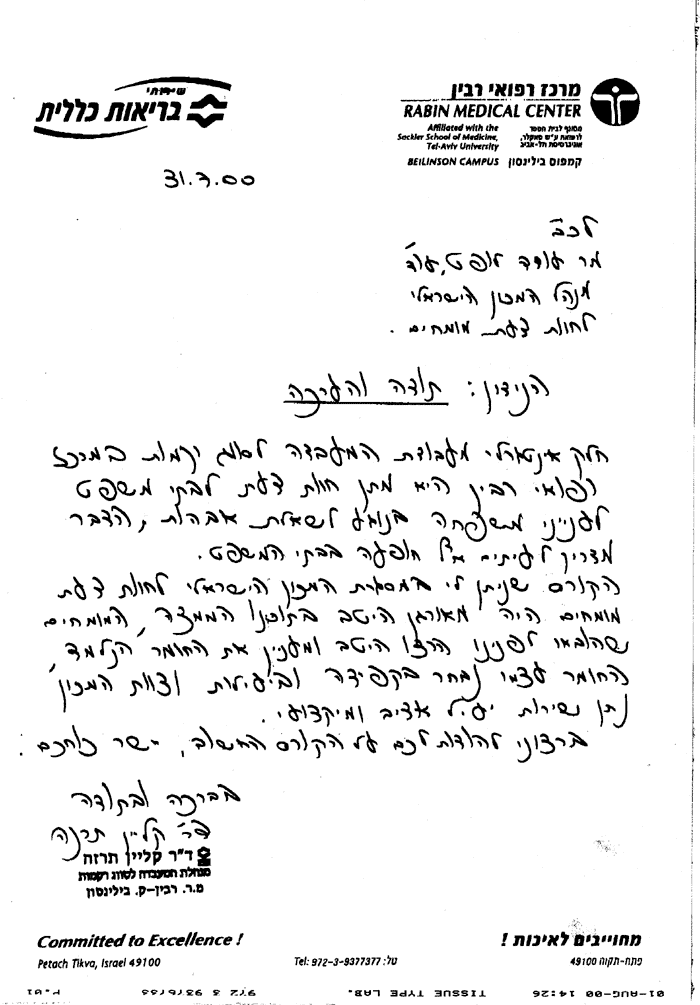 שירותי
בריאות כללית
מרכז רפואי רבין
RABIN MEDICAL CENTER
Affiliated with the
Sackler School of Medicine,
Tel-Aviv University
מסונף לבית הספר
לרפואה ע"ש סאקלר,
אוניברסיטת תל-אביב
BEILINSON CAMPUS קמפוס בילינסון
31.7.00
לכב'
מר עודד לופט, עו"ד
מנהל המכון הישראלי
לחוות דעת מומחים.
הנידון: תודה והערכה
חלק אינטגרלי מעבודת המעבדה לסווג רקמות במרכז
רפואי רבין היא מתן חוות דעת לבתי משפט
לענייני משפחה בנוגע לשאלת אבהות, הדבר
מצריך לעיתים הופעה בבתי המשפט.
הקורס שניתן לי במסגרת המכון הישראלי לחוות דעת
מומחים היה מאורגן היטב בתוכנו, המומחים
שהובאו לפנינו הרצו היטב ומענין את החומר הנלמד,
החומר עצמו נבחר בקפידה וביעילות וצוות המכון
נתן שירות יעיל אדיב ומיקצועי.
ברצוני להודות לכם על הקורס החשוב, יישר כוחכם.
בברכה ובתודה
דר' קליין תרזה
ד"ר קליין תרזה
מנהלת המעבדה לסווג רקמות
מ.ר. רבין-ק. בילינסון
Committed to Excellence !
מחוייבים לאיכות !
Petach Tikva, Israel 49100
Tel: 972-3-9377377 טל:
פתח-תקוה 49100
01-AUG-00 14:26 TISSUE TYPE LAB. 972 3 P.01